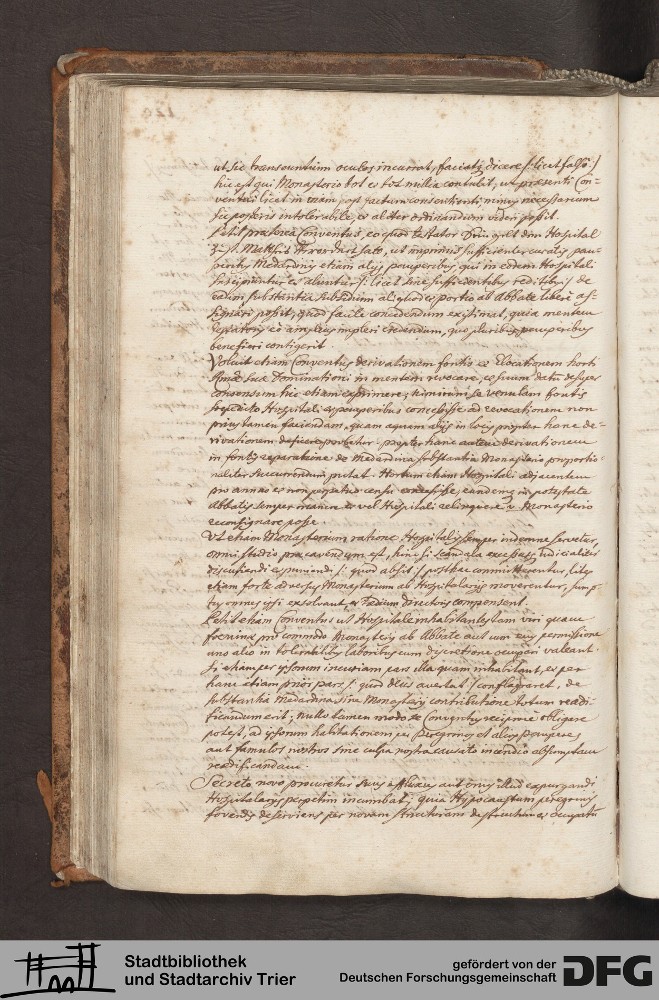 ut sic transeuntium oculos incurrat, faciatq dicere /: licet falso :/
hic est qui Monasterio tot et tot millia contulit, ut praesenti Con=
ventui licet in tam post factum consentienti, minus necessarium
sic posteris intolerabile, et aliter ordinandum videri possit.
Petit praeterea Conventus, eo quod testator Trium dem Hospital
Zu St. Matthis Verordnet hatt, ut imprimis sufficienter curatis pau=
peribus Medardinis etiam alijs pauperibus qui in eodem Hospitali
suscipiuntur et aluntur /: licet sine sufficientibus reditibus :/ de
eadem substantia subsidium aliquod et portio ab Abbate liberi as=
signari possit, quod facile concedendum existimat, quia mentem
testatoris eo amplius impleri credendum, quo pluribus pauperibus
benefieri contigerit.
Voluit etiam Conventus derivationem fontis et Elocationem horti
Suae Dominationi in mentem revocare, et suum datum desuper
consensum hic etiam exprimere, nimirum se venulam fontis
Hospitali et pauperibus concessisse ad revocationem non
prius tamen faciendam, quam aquam alijs in locis propter hanc de=
rivationem deficere probetur. propter hanc autem derivationem
in fontis reparatione de Medardina substantia Monasterio proportio=
naliter succurrendum putat. Hortum etiam Hospitali adjacentem
pro annuo et non perpetuo censu concessisse, eandemq in potestate
Abbatis semper manere vel Hospitali relinquere Monasterio
reconsignare posse.
Ut etiam Monasterium ratione Hospitalis semper indemne servetur,
omni studio praecavendum est, hinc si scandala excessus, judicialiter
discutiendi et puniendi /: quod absit :/ posthac committerentur, lites
etiam forte adversus Monasterium ab Hospitalarijs moverentur, sump=
tus omnes ipsi exsolvant, et Taedium Directoris compensent.
Petit etiam Conventus ut Hospitale inhabitantes tam viri quam
foeminae pro commodo Monasterij ab Abbate aut cum eius permissione
uno alio in tolerabilibus laboribus cum discretione occupari valeant.
Si etiam per ipsorum incuriam pars illa quam inhabitant, et per
hanc etiam prior pars /: quod Deus avertat :/ conflagraret, de
substantia Medardina sine Monasterij contributione totum reaedi=
ficandum erit; nullo tamen modo se Conventus reciproce obligare
potest, ad ipsorum habitationem per Peregrinos et alios Pauperes
aut famulos nostros sine culpa nostra causato incendio absumptam
reaedificandam.
Secreto novo procuretur suus effluxus aut onus illud expurgandi
Hospitalarijs perpetim incumbat, quia Hypocaustum peregrinis
fovendis deserviens per novam structuram destructum et occupatum
Stadtbibliothek
und Stadtarchiv Trier
gefördert von der
Deutschen Forschungsgemeinschaft
DFG